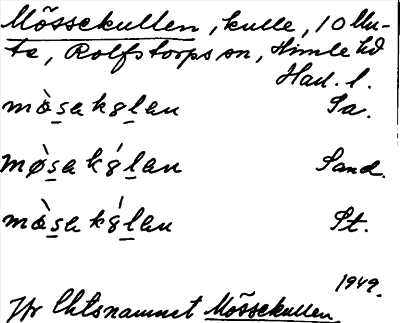 Mössekullen, kulle, 10 Mu-
te, Rolfstorps sn, Himle hd
Hall. l.
mòsakꝸlan Sa.
mø̀sakꝸ́lan Sand.
mòsakꝸ́lan St.
1949.
Jfr Uhtsnamnet Mössekullen